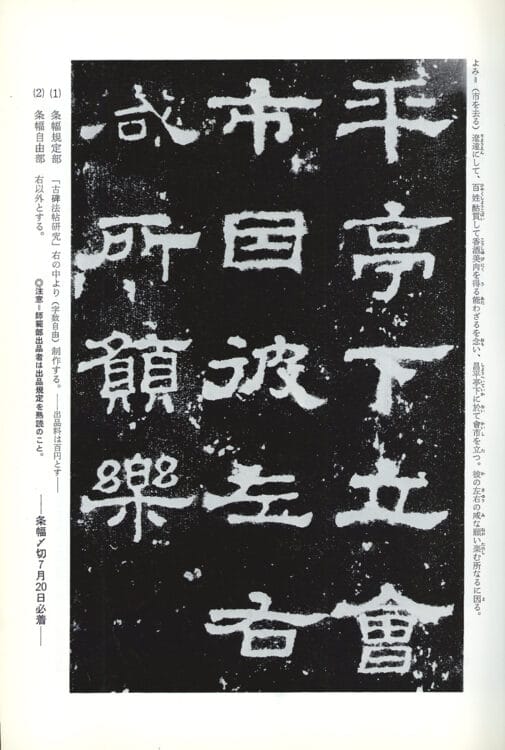 よみ=(市を去る)遼遠にして、百姓酤買して香酒美肉を得る能わざるを念い、昌平亭下に於て會市を立つ。彼の左右の咸な願い楽む所なるに因る。
平亭下立會
市因彼左右
咸所願樂
(1) 条幅規定部 「古碑法帖研究」右の中より(字数自由)制作する。――出品料は百円とす――
(2) 条幅自由部 右以外とする。
◎注意=師範部出品者は出品規定を熟読のこと。
――条幅〆切7月20日必着――